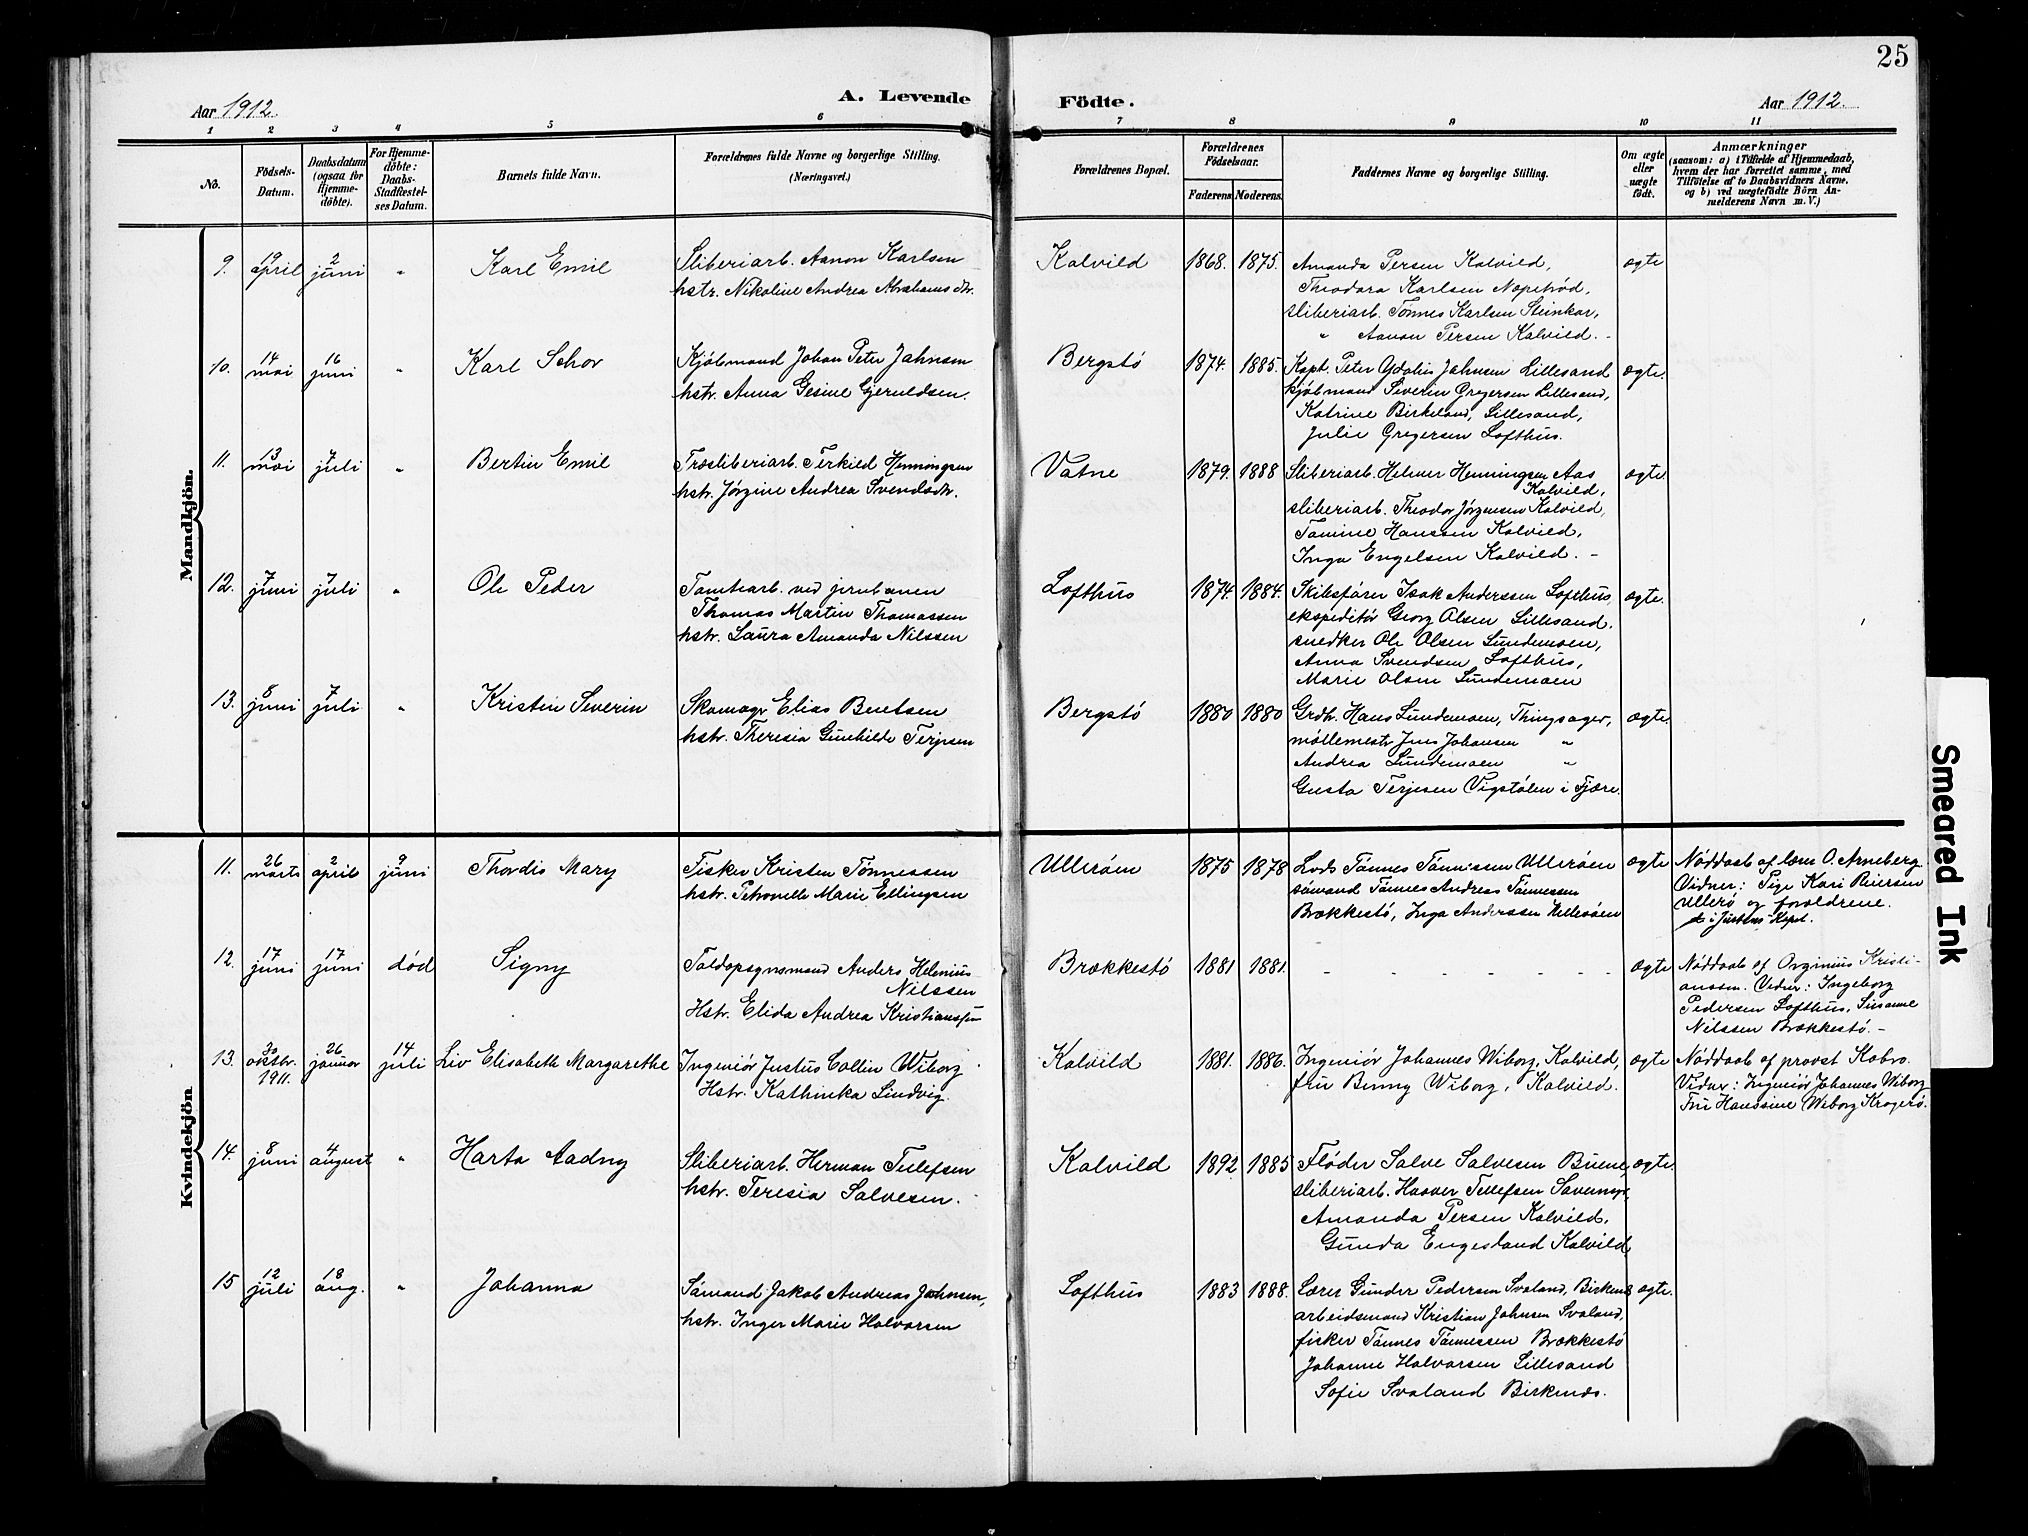 25
Aar 1912.
A. Levende
Födte.
Aar 1912.
1 2 3 4 5 6 7 8 9 10 11
No.
Födsels-
Datum.
Daabsdatum
(ogsaa for
Hjemme-
döbte).
For Hjemme-
döbte:
Daabs-
Stadfæstel-
ses Datum.
Barnets fulde Navn.
Forældrenes fulde Navne og borgerlige Stilling.
(Næringsvei.)
Forældrenes Bopæl.
Forældrenes
Födselsaar.
Faderens Moderens.
Faddernes Navne og borgerlige Stilling.
Om ægte
eller
uægte
födt.
Anmærkninger
(saasom: a) i Tilfælde af Hjemmedaab,
hvem der har forrettet samme, med
Tilföielse af to Daabsvidners Navne.
og b) ved uægtefödte Börn An-
melderens Navn m. V.)
Mandkjön.
9.
19
april
2
juni
"
Karl Emil
Sliberiarb. Aanon Karlsen
hstr. Nikoline Andrea Abrahamsdtr.
Kalvild
1868.
1875.
Amanda Persen Kalvild,
Theodora Karlsen Næpetrød,
sliberiarb. Tønnes Karlsen Steinkar,
" Aanon Persen Kalvild. -
ægte
10.
14
mai
16
juni
"
Karl Schov
Kjøbmand Johan Peter Jahnsen
hstr. Anna Gesine Gjeruldsen.
Bergstø
1874.
1885.
Kapt. Peter Jahnsen Lillesand
kjøbmand Severin Gregersen Lillesand,
Katrine Birkeland, Lillesand,
Julie Gregersen Lofthus.
ægte.
11.
13
mai
7
juli
"
Bertin Emil
Træsliberiarb. Terkild Henningsen
hstr. Jørgine Andrea Svendsdtr.
Vatne
1879.
1888
Sliberiarb. Helmer Henningsen Aas
Kalvild,
sliberiarb. Theodor Jørgensen Kalvild,
Tomine Hanssen Kalvild,
Inga Engelsen Kalvild. -
ægte.
12.
7
juni
7
juli
"
Ole Peder
Tomtearb. ved jernbanen
Thomas Martin Thomassen
hstr. Laura Amanda Nilssen
Lofthus
1874.
1884.
Skibsfører Isak Anderssen Lofthus,
ekspeditør Georg Olsen Lillesand,
snedker Ole Olsen Sundemoen,
Anna Svendsen Lofthus,
Marie Olsen Sundemoen
ægte.
13.
8
juni
7
juli
"
Kristen Severin
Skomagr Elias Bentsen
hstr. Theresia Gunhilde Terjesen
Bergstø
1880
1880
Grdb. Hans Sundemoen, Thingsager,
møllemestr Jens Johansen "
Andrea Sundemoen "
Gusta Terjesen Vigstølen i Fjære.
ægte.
Kvindekjön
11.
26
marts
2
april
9
juni
Thordis Mary
Fisker Kristen Tønnessen
hstr. Petronelle Marie Ellingsen
Ullerøen
1875
1878
Lods Tønnes Tønnessen Ullerøen
sømand Tønnes Andreas Tønnessen
Brækkestø, Inga Anderssen Ullerøen
ægte
Nøddaab af lærer O. Arneberg
Vidner: Pige Kari Reiersen
Ullerø og forældrene.
i Justøens Kapel.
12.
17
juni
17
juni
død
Signy
Toldopsynsmand Anders Helenius
Nilssen
Hstr. Elida Andrea Kristianssen
Brækkestø
1881
1881.
- - - - - - -
ægte
Nøddaab af Orginius Kristi-
anssen. Vidner: Ingeborg
Pedersen Lofthus, Susanne
Nilssen Brækkestø. -
13.
30
oktbr.
1911.
26
januar
14
juli
Liv Elisabeth Margarethe
Ingeniør Justus Collin Wiborg
Hstr. Kathinka Lindvig.
Kalvild
1881.
1886.
Ingeniør Johannes Wiborg, Kalvild,
fru Benny Wiborg, Kalvild.
ægte
Nøddaab af provst Kobro.
Vidner: Ingeniør Johannes Wiborg
Fru Hanssine Wiborg Kragerø.
14.
8
juni
4
august
"
Harta Aadny
Sliberiarb. Herman Tellefsen
hstr. Teresia Salvesen.
Kalvild
1892
1885
Fløder Salve Salvesen Buene,
sliberiarb. Haaver Tellefsen
Amanda Persen Kalvild,
Gunda Engesland Kalvild,
ægte.
15
12
juli
18
aug.
"
Johanna
Sømand Jakob Andreas Jahnsen,
hstr. Inger Marie Halvorsen
Lofthus
1883
1888.
Lærer Gunder Pedersen Svaland, Birkenes
arbeidsmand Kristian Jahnsen Svaland,
fisker Tønnes Tønnessen Brækkestø
Johanne Halvorsen Lillesand
Sofie Svaland Birkenes.
ægte.
Smeared Ink